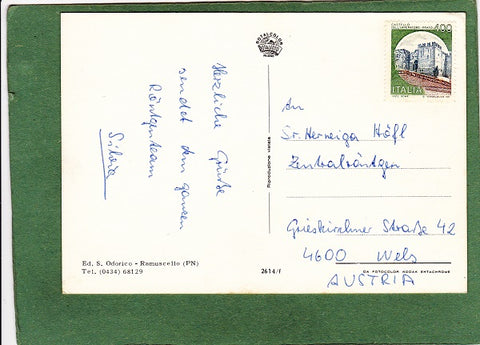 ROTALCOLOR
CASTELLO
DELL'IMPERATORE · PRATO
400
ITALIA
Herzliche Grüße
sendet dem ganzen
Röntgenteam
Silvia
Riproduzione vietata
An
Sr. Herwiga Höfl
Zentralröntgen
Grieskirchner Straße 42
4600 Wels
AUSTRIA
Ed. S. Odorico - Ramuscello (PN)
Tel. (0434) 68129
2614/f
DA FOTOCOLOR KODAK EKTACHROME